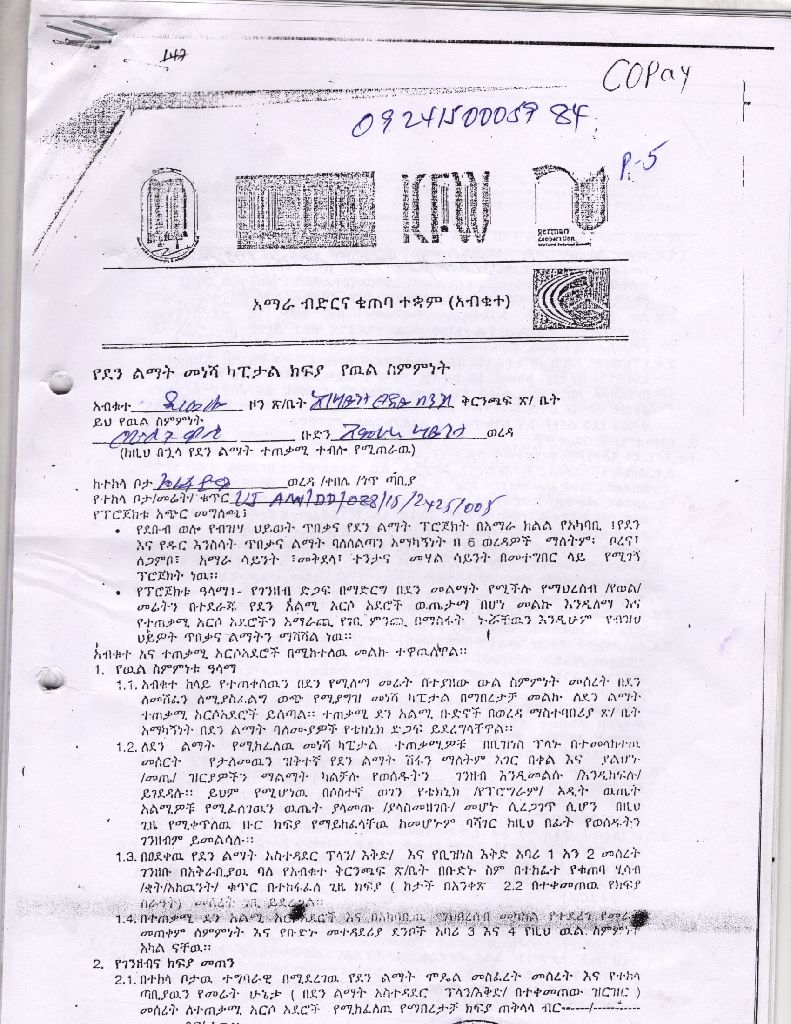 147
COPay
0924150005984
P-5
KFW
german cooperation
አማራ ብድርና ቁጠባ ተቋም (አብቁተ)
የደን ልማት መነሻ ካፒታል ክፍያ የዉል ስምምነት
አብቁተ ዞን ጽ/ቤት ቅርንጫፍ ጽ/ ቤት
ይህ የዉል ስምምነት
ቡድን ወረዳ
(ከዚህ በኋላ የደን ልማት ተጠቃሚ ተብሎ የሚጠራዉ)
ከተከላ ቦታ ወረዳ /ቀበሌ /ጎጥ ጣቢያ
የተከላ ቦታ/መሬት/ ቁጥር UJ AM/DD/028/15/2425/005
የፕሮጀክቱ አጭር መግለጫ፤
• የደቡብ ወሎ የብዝሃ ህይወት ጥበቃና የደን ልማት ፕሮጀክት በአማራ ክልል የአካባቢ ፣የደን
እና የዱር እንስሳት ጥበቃና ልማት ባለስልጣን አማካኝነት በ 6 ወረዳዎች ማለትም፡ ቦረና፣
ለጋምቦ፣ አማራ ሳይንት ፣መቅደላ፣ ተንታና መሃል ሳይንት በመተግበር ላይ የሚገኝ
ፕሮጀክት ነዉ።
• የፕሮጀክቱ ዓላማ፤- የገንዘብ ድጋፍ በማድርግ በደን መልማት የሚችሉ የማህረሰብ /የወል/
መሬትን በተደራጁ የደን አልሚ አርሶ አደሮች ዉጤታማ በሆነ መልኩ እንዲለማ እና
የተጠቃሚ አርሶ አደሮችን አማራጪ የገቢ ምንጪ በማስፋት ኑሯቸዉን እንዲሁም የብዝሃ
ህይዎት ጥበቃና ልማትን ማሻሻል ነዉ።
አብቁተ እና ተጠቃሚ አርሶአደሮች በሚከተለዉ መልኩ ተዋዉለዋል።
1. የዉል ስምምነቱ ዓላማ
1.1. አብቁተ ከላይ የተጠቀሰዉን በደን የሚለማ መሬት በተያዘው ውል ስምምነት መሰረት በደን
ለመሸፈን ለሚያስፈልግ ወጭ የሚያግዝ መነሻ ካፒታል በማበረታቻ መልክ ለደን ልማት
ተጠቃሚ አርሶአደሮች ይሰጣል። ተጠቃሚ ደን አልሚ ቡድኖች በወረዳ ማስተባበሪያ ጽ/ ቤት
አማካኝነት በደን ልማት ባለሙያዎች የቴክኒክ ድጋፍ ይደረግላቸዋል።
1.2. ለደን ልማት የሚከፈለዉ መነሻ ካፒታል ተጠቃሚዎቹ በቢዝነስ ፕላኑ በተመላከተዉ
መሰርት የታለመዉን ዝቅተኛ የደን ልማት ሽፋን ማለትም አገር በቀል እና ያልሆኑ
/መጤ/ ዝርያዎችን ማልማት ካልቻሉ የወሰዱትን ገንዘብ እንዲመልሱ /እንዲከፍሉ/
ይገደዳሉ። ይህም የሚሆነዉ በሶስተኛ ወገን የቴክኒክ /የፕሮግራም/ አዲት ዉጤት
አልሚዎቹ የሚፈለገዉን ዉጤት ያላመጡ /ያላስመዘገቡ/ መሆኑ ሲረጋገጥ ሲሆን በዚህ
ጊዜ የሚቀጥለዉ ዙር ክፍያ የማይከፈላቸዉ ከመሆኑም ባሻገር ከዚህ በፊት የወሰዱትን
ገንዘብም ይመልሳሉ።
1.3. በፀደቀዉ የደን ልማት አስተዳደር ፕላን/ እቅድ/ እና የቢዝነስ እቅድ አባሪ 1 እን 2 መሰረት
ገንዘቡ በአቅራቢያዉ ባለ የአብቁተ ቅርንጫፍ ጽ/ቤት በቡድኑ ስም በተከፈተ የቁጠባ ሂሳብ
/ቋት/አካዉንት/ ቁጥር በተከፋፈለ ጊዜ ክፍያ ( ከታች በአንቀጽ 2.2 በተቀመጠዉ የክፍያ
መሰረት ገቢ ይደረጋል።
1.4. በተጠቃሚ ደን አልሚ አርሶአደሮች እና በአካባቢዉ ማህበረሰብ መካከል የተደረገ የመሬት
መጠቀም ስምምነት እና የቡድኑ መተዳደሪያ ደንቦች አባሪ 3 እና 4 የዚህ ዉል ስምምነት
አካል ናቸዉ።
2. የገንዘብና ክፍያ መጠን
2.1. በተከላ ቦታዉ ተግባራዊ በሚደረገዉ የደን ልማት ሞዴል መስፈረት መሰረት እና የተከላ
ጣቢያዉን የመሬት ሁኔታ ( በደን ልማት አስተዳደር ፕላን/እቅድ/ በተቀመጠው ዝርዝር )
መሰረት ለተጠቃሚ አርሶ አደሮች የሚከፈለዉ የማበረታቻ ክፍያ ጠቅላላ ብር------/----------